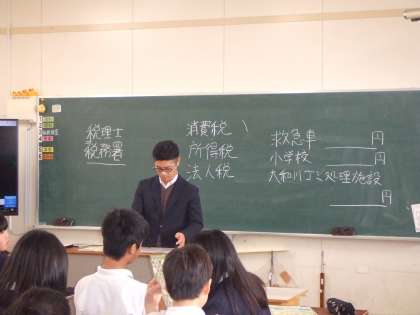 税理士
税務署
消費税
所得税
法人税
救急車 円
小学校 円
大和川ゴミ処理施設
円